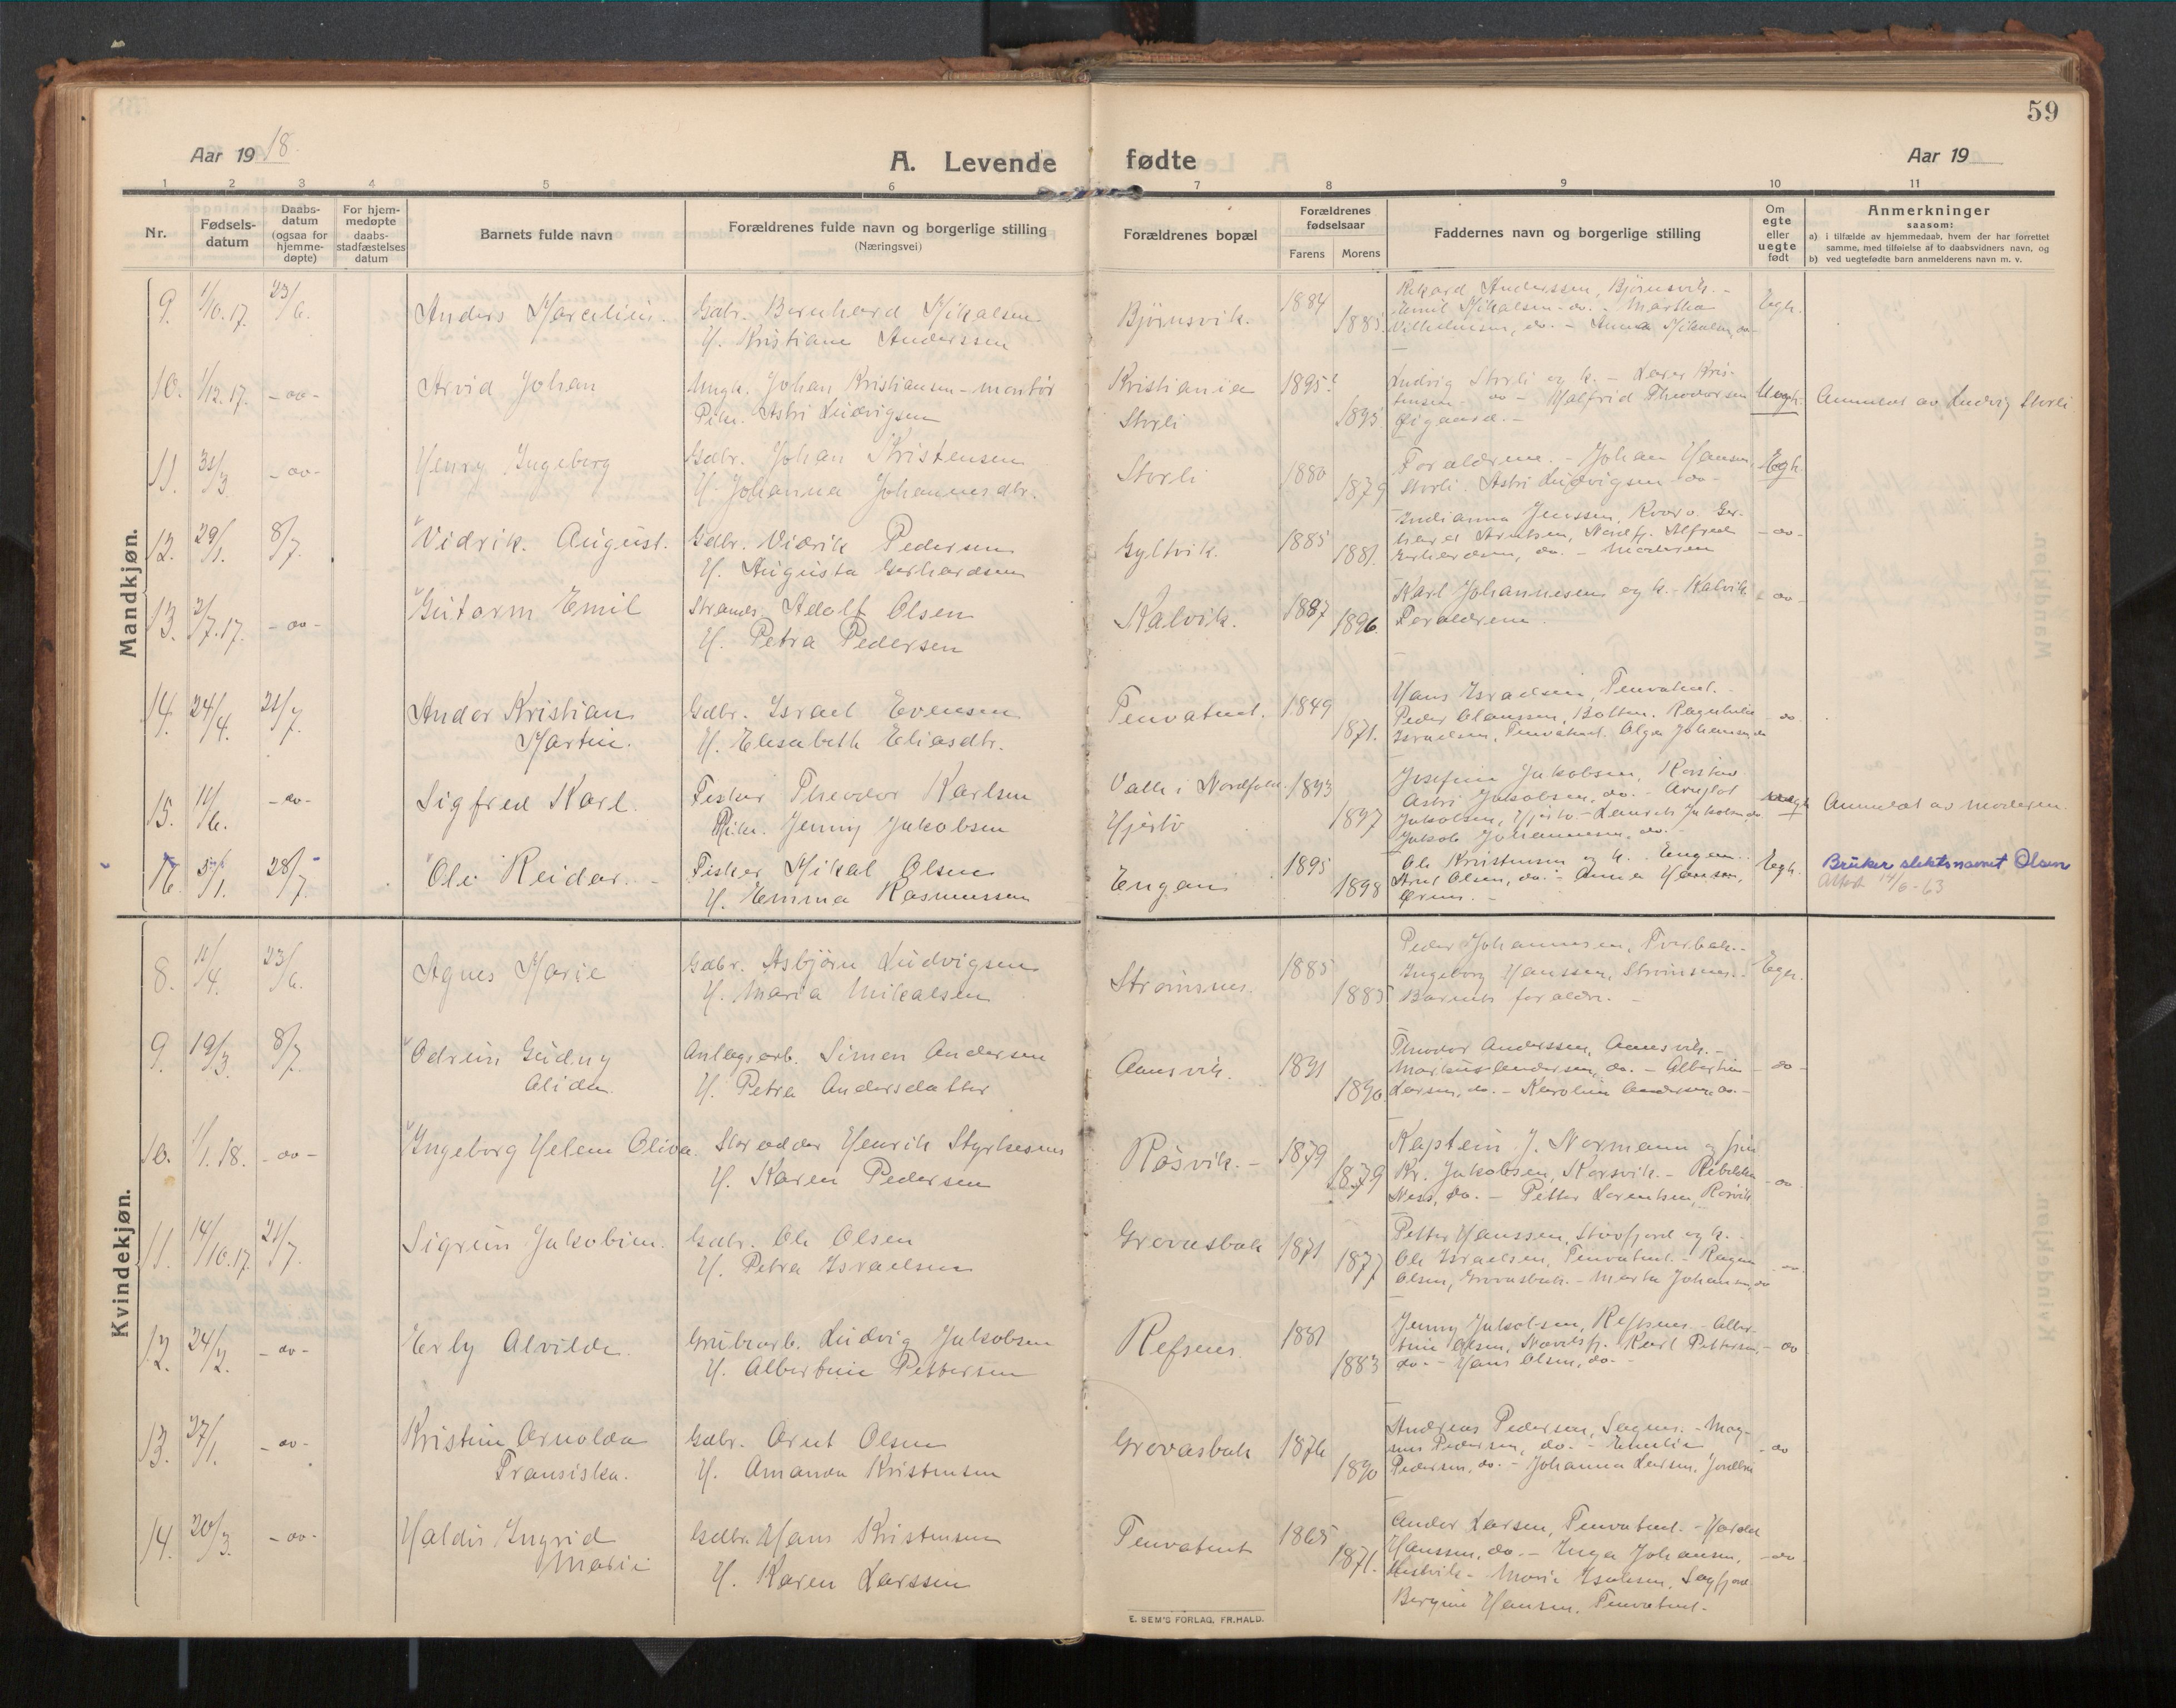 59
Aar 1918.
A. Levende fødte
Aar 19
1 2 3 4 5 6 7 8 9 10 11
Nr.
Fødsels-datum
Daabs-datum (ogsaa for hjemme-døpte)
For hjem-medøpte daabs-stadfæstelses datum
Barnets fulde navn
Forældrenes fulde navn og borgerlige stilling
(Næringsvei)
Forældrenes bopæl
Forældrenes fødselsaar
Farens Morens
Faddernes navn og borgerlige stilling
Om egte eller uegte født
Anmerkninger
saasom:
a) i tilfælde av hjemmedaab, hvem der har forrettet
samme, med tilføielse af to daabsvidners navn, og
b) ved uegtefødte barn anmelderens navn m. v.
Mandkjøn.
9. 1/10.17. 23/6. Anders Marcelius. Gdbr. Bernhard Mikalsen Bjørnsvik. 1884 Rikard Anderssen, Bjørnsvik. - Egte.
H. Kristiane Anderssen 1885. Emil Mikalsen do. - Martha
Vilhelmsen, do. - Anna Mikalsen, do -
10. 1/12.17. - do - Arvid Johan Ungk. Johan Kristiansen - montør Kristiania 1895? Ludvig Storli og k. - Uegte. Anmeldt av Ludvig Storli
Pike. Astri Ludvigsen Storli 1895. - do - Halfrid Theodorsen
11. 31/3. - do - Henry Ingeborg Gdbr. Johan Kristensen Storli 1880 Forældrene. - Johan Hansen, Egte
H. Johanna Johannesdtr. 1879 Storli. Astri Ludvigsen do -
12. 29/1. 8/7. Vidrik August. Gdbr. Vidrik Pedersen Gyltvik. 1885 Indianna Jenssen, - do -
H. Augusta Gerhardsen 1881. Gerhardsen, do. - Moderen
13. 2/7.17. - do - Gutorm Emil Strands. Adolf Olsen Kalvik. 1887 Karl Johannesen og k. - Kalvik - do -
H. Petra Pedersen 1896. Forældrene.
14. 24/4. 21/7. Andor Kristian Gdbr. Israel Evensen Tenvatnet. 1849 Hans Israelsen, Tenvatnet. -
Martin. H. Elisabeth Eliasdtr. 1871. Peder Olaussen, - do -
Israelsen, Tenvatnet. Olga Johansen, do
15. 11/6. - do - Sigfred Karl. Fisker Theodor Karlsen Valle i Nordfold 1893 Josefine Jakobsen, Anmeldt av moderen.
Pike. Jenny Jakobsen Hjertø 1897 Astri Jakobsen, do. -
Jakob Johannessen, do. -
16. 5/1. 28/7. Ole Reidar. - Fisker Mikal Olsen Engan 1895 Ole Kristensen og k. Engan. - Egte. Bruker slektsnavnet Olsen
H. Emma Rasmussen 1898 Arnt Olsen, do. - Anna Hansen, 14/6-63
Kvindekjøn.
8. 11/4. 23/6. Agnes Marie Gdbr. Asbjørn Ludvigsen Strømsnes. 1885 Peder Johannessen, Tverbak. - Egte.
H. Maria Mikalsen 1885 Ingeborg Hanssen, Strømsnes. -
Barnets forældre. -
9. 19/3. 8/7. Odrun Gudny Anlægsarb. Simon Andersen Aamsvik. 1891 Theodor Anderssen, Aamsvik. - - do -
Alida H. Petra Andersdatter 1890. Markus Andersen, do. - Albertine
Larsen, do. - Karoline Andersen, do. -
10. 1/1.18. - do - Ingeborg Helene Oliva. Skrædder Henrik Styrkesnes Røsvik. - 1879 Kaptein J. Normann og fru - do -
H. Karen Pedersen 1879 Kr. Jakobsen, Korsvik. -
Ness, do. - Petter Lorentsen, Røsvik
11. 14/10.17. 21/7. Sigrun Jakobine. Gdbr. Ole Olsen Grovasbak 1871 Petter Hanssen, Storfjord og k.
H. Petra Israelsen 1877 Ole Israelsen, Tenvatnet. - Ragna
Olsen, Grovasbak. - Marta Johansen, do
12. 24/2. - do - Erly Alvilde. Grubearb. Ludvig Jakobsen Refsnes. 1881 Jenny Jakobsen, Refsnes. - Alber- - do
H. Albertine Pettersen 1883 tine Olsen, Karl Pettersen,
do. - Hans Olsen, do. -
13. 27/1. - do - Kristine Arnolda Gdbr. Arnt Olsen Grovasbak 1876 Andreas Pedersen, Sagnes. - Mag- - do
Fransiska. H. Amanda Kristensen 1890 nus Pedersen, do. - Emelie
Pedersen, do. - Johanna Larsen,
14. 20/3. - do - Haldis Ingrid Gdbr. Hans Kristensen Tenvatnet 1865 Andor Larsen, Tenvatnet. - Harald
Marie H. Karen Larssen 1871. Hanssen, do. - Inga Johansen, - do -
Marie Isaksen, Sagfjord
Bergine Hansen, Tenvatnet. -
E. SEM'S FORLAG, FR.HALD.